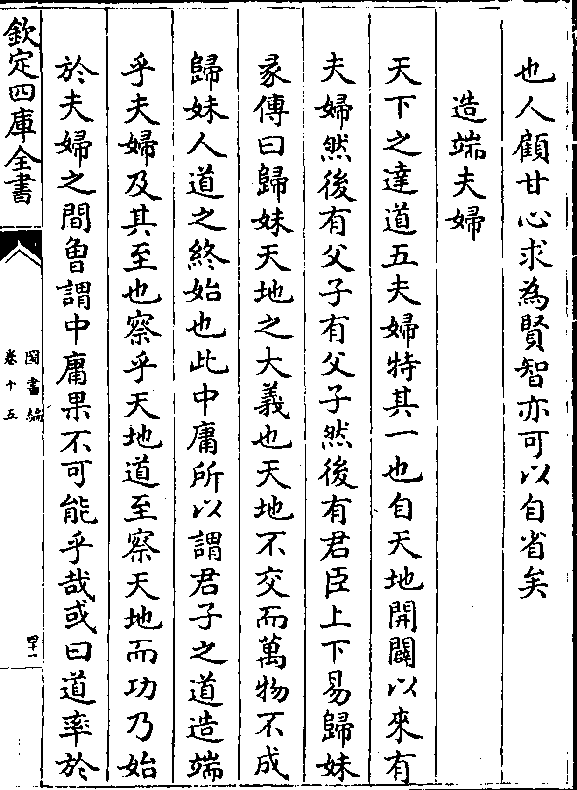 也人顧甘心求為賢智亦可以自省矣
造端夫婦
天下之達道五夫婦特其一也自天地開闢以來有
夫婦然後有父子有父子然後有君臣上下易歸妹
彖傳曰歸妹天地之大義也天地不交而萬物不成
歸妹人道之終始也此中庸所以謂君子之道造端
乎夫婦及其至也察乎天地道至察天地而功乃始
於夫婦之間曾謂中庸果不可能乎哉或曰道率於
欽定四庫全書
圖書編
卷十五
四十一